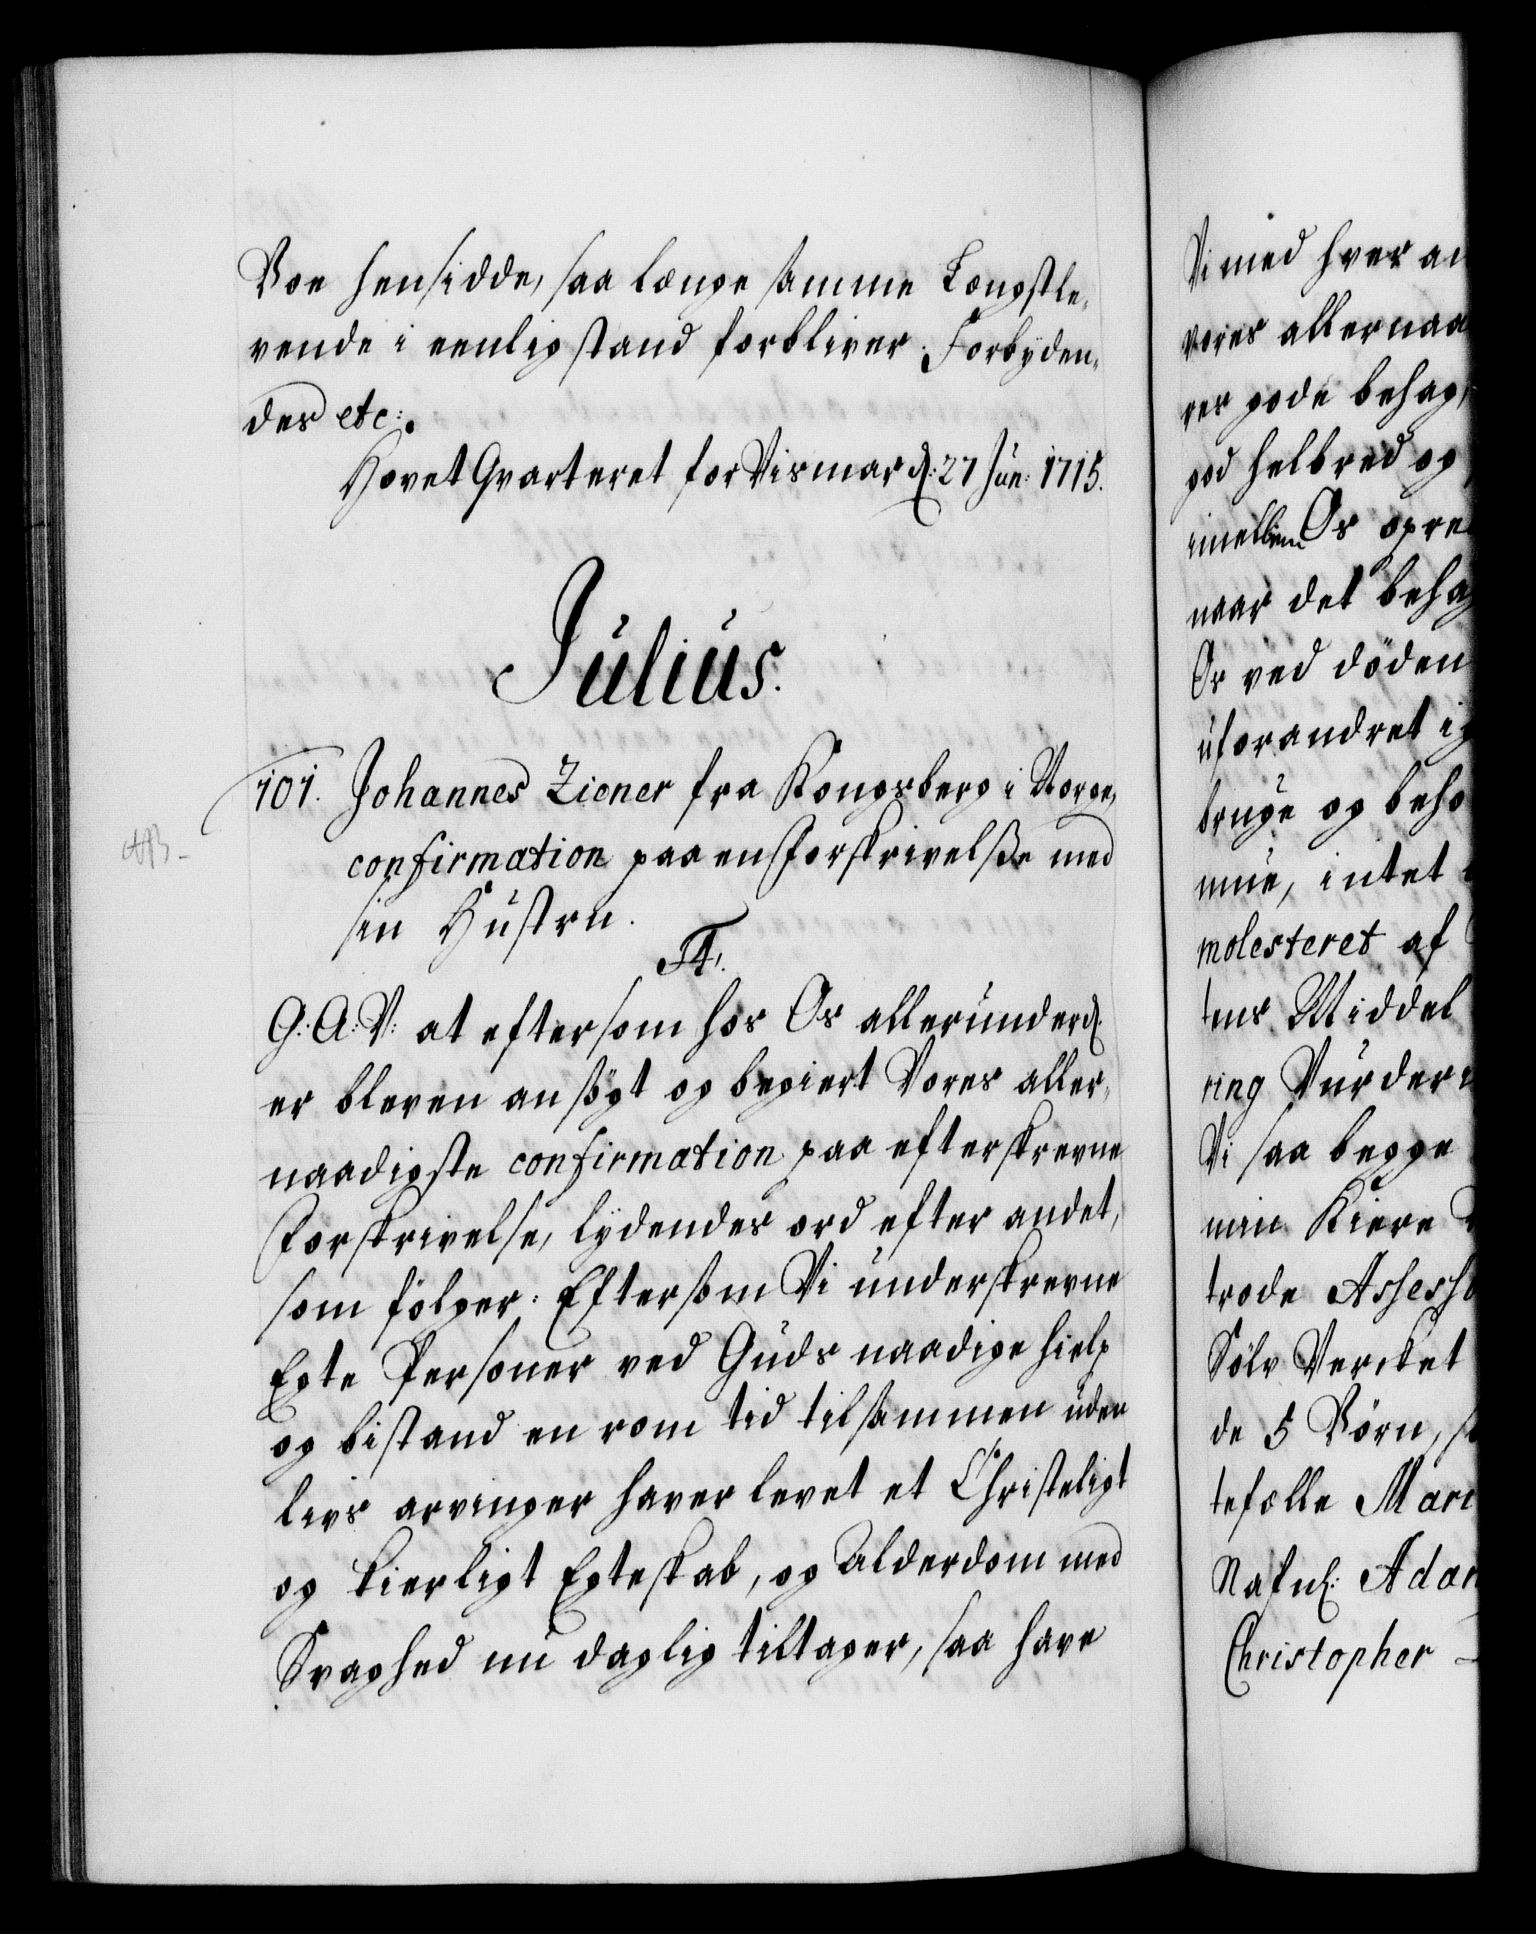 Boe hensidde, saa længe samme Længstle,
vende i eenlig stand forbliver. Forbyden,
des etc:.
HovetQvarteret for Vismar d: 27 Jun: 1715.
Julius.
101. Johannes Ziener fra Kongsberg i Norge,
confirmation paa en Forskrivelsse med
sin Hustru.
F4.
G: A: V: at eftersom hos Os allerunderd.
er bleven ansøgt og begiert Vores aller,
naadigste confirmation paa efterskrevne
Forskrivelse, lydendes ord efter andet,
som følger: Eftersom Vi underskrevne
Egte Personer ved Guds naadige hielp
og bistand en rom tid tilsammen uden
livs arvinger haver levet et Christeligt
og kierligt Egteskab, og Alderdom med
Svaghed nu daglig tiltager, saa have
Vi med hver an
vores allernaa
res gode behag,
god helbred og
imellem Os opre
naar det behag
Os ved døden
uforandret ig
bruge og beho
mue, intet
molesteret af
tens Middel
ring Vurderi
Vi saa begge
min Kiere
trode Assesso
Sølv Vercket
de 5 Børn, s
tefælle Mare
Nafnl: Adam
Christopher